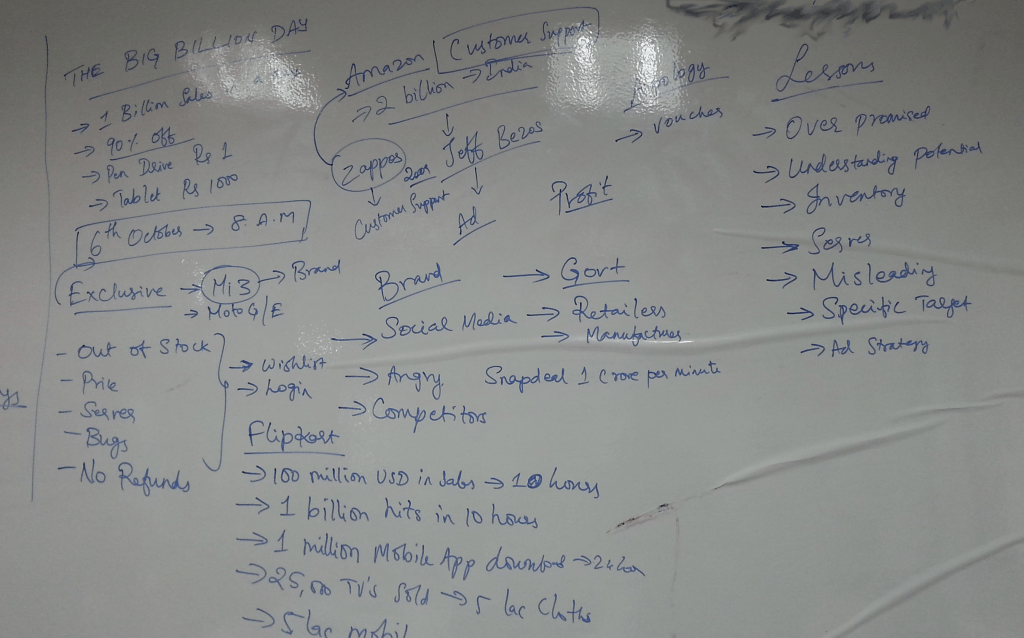 THE BIG BILLION DAY
→ 1 Billion Sales
→ 90% Off
→ Pen Drive Rs 1
→ Tablet Rs 1000
6th October → 8 A.M
Exclusive → Mi3 → Brand
→ Moto G/E
- Out of Stock
- Price
- Server
- Bugs
- No Refunds
→ Wishlist
→ Login
Amazon | Customer Support
→ 2 billion → India
Zappos 2009 Jeff Bezos
Customer Support
Ad
Profit
Apology
→ Voucher
Brand
→ Social Media
→ Angry
→ Competitors
→ Govt
→ Retailers
→ Manufactures
Snapdeal 1 Crore per minute
Flipkart
→ 100 million USD in Sales → 10 hours
→ 1 billion hits in 10 hours
→ 1 million Mobile App download → 24 hour
→ 25,000 TV's Sold → 5 lac Cloths
→ 5 lac mobil
Lessons
→ Over promised
→ Understanding potential
→ Inventory
→ Server
→ Misleading
→ Specific Target
→ Ad Strategy
ys